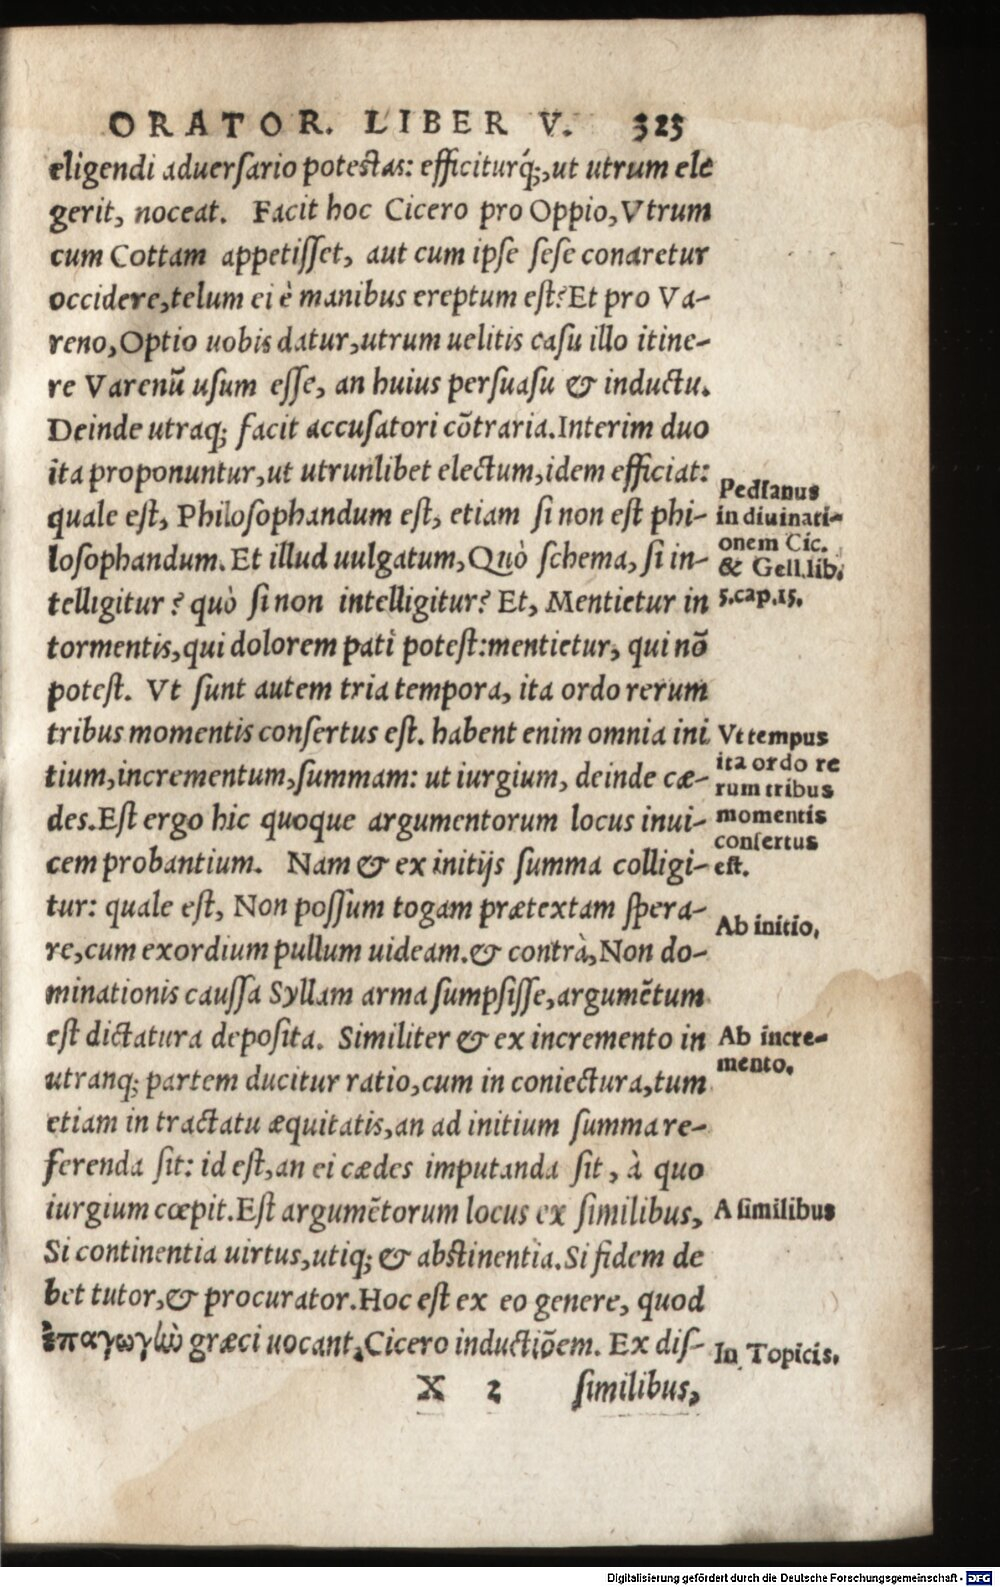 ORATOR. LIBER V. 325
eligendi aduersario potestas: efficiturq́;, ut utrum ele
gerit, noceat. Facit hoc Cicero pro Oppio, Vtrum
cum Cottam appetisset, aut cum ipse sese conaretur
occidere, telum ei è manibus ereptum est? Et pro Va-
reno, Optio uobis datur, utrum uelitis casu illo itine-
re Varenū usum esse, an huius persuasu & inductu.
Deinde utraq; facit accusatori cōtraria. Interim duo
ita proponuntur, ut utrunlibet electum, idem efficiat:
quale est, Philosophandum est, etiam si non est phi-
losophandum. Et illud uulgatum, Quò schema, si in-
telligitur? quò si non intelligitur? Et, Mentietur in
tormentis, qui dolorem pati potest: mentietur, qui nō
potest. Vt sunt autem tria tempora, ita ordo rerum
tribus momentis consertus est. habent enim omnia ini
tium, incrementum, summam: ut iurgium, deinde cæ-
des. Est ergo hic quoque argumentorum locus inui-
cem probantium. Nam & ex initijs summa colligi-
tur: quale est, Non possum togam prætextam spera-
re, cum exordium pullum uideam. & contrà, Non do-
minationis caussa Syllam arma sumpsisse, argumētum
est dictatura deposita. Similiter & ex incremento in
utranq; partem ducitur ratio, cum in coniectura, tum
etiam in tractatu æquitatis, an ad initium summa re-
ferenda sit: id est, an ei cædes imputanda sit, à quo
iurgium cœpit. Est argumētorum locus ex similibus,
Si continentia uirtus, utiq; & abstinentia. Si fidem de
bet tutor, & procurator. Hoc est ex eo genere, quod
ἐπαγωγὼ græci uocant, Cicero inductiōem. Ex dis-
X 2 similibus,
Pedianus
in diuinati-
onem Cic.
& Gell. lib.
5. cap. 15.
Vt tempus
ita ordo re
rum tribus
momentis
consertus
est.
Ab initio.
Ab incre-
mento.
A similibus
In Topicis.
Digitalisierung gefördert durch die Deutsche Forschungsgemeinschaft - DFG